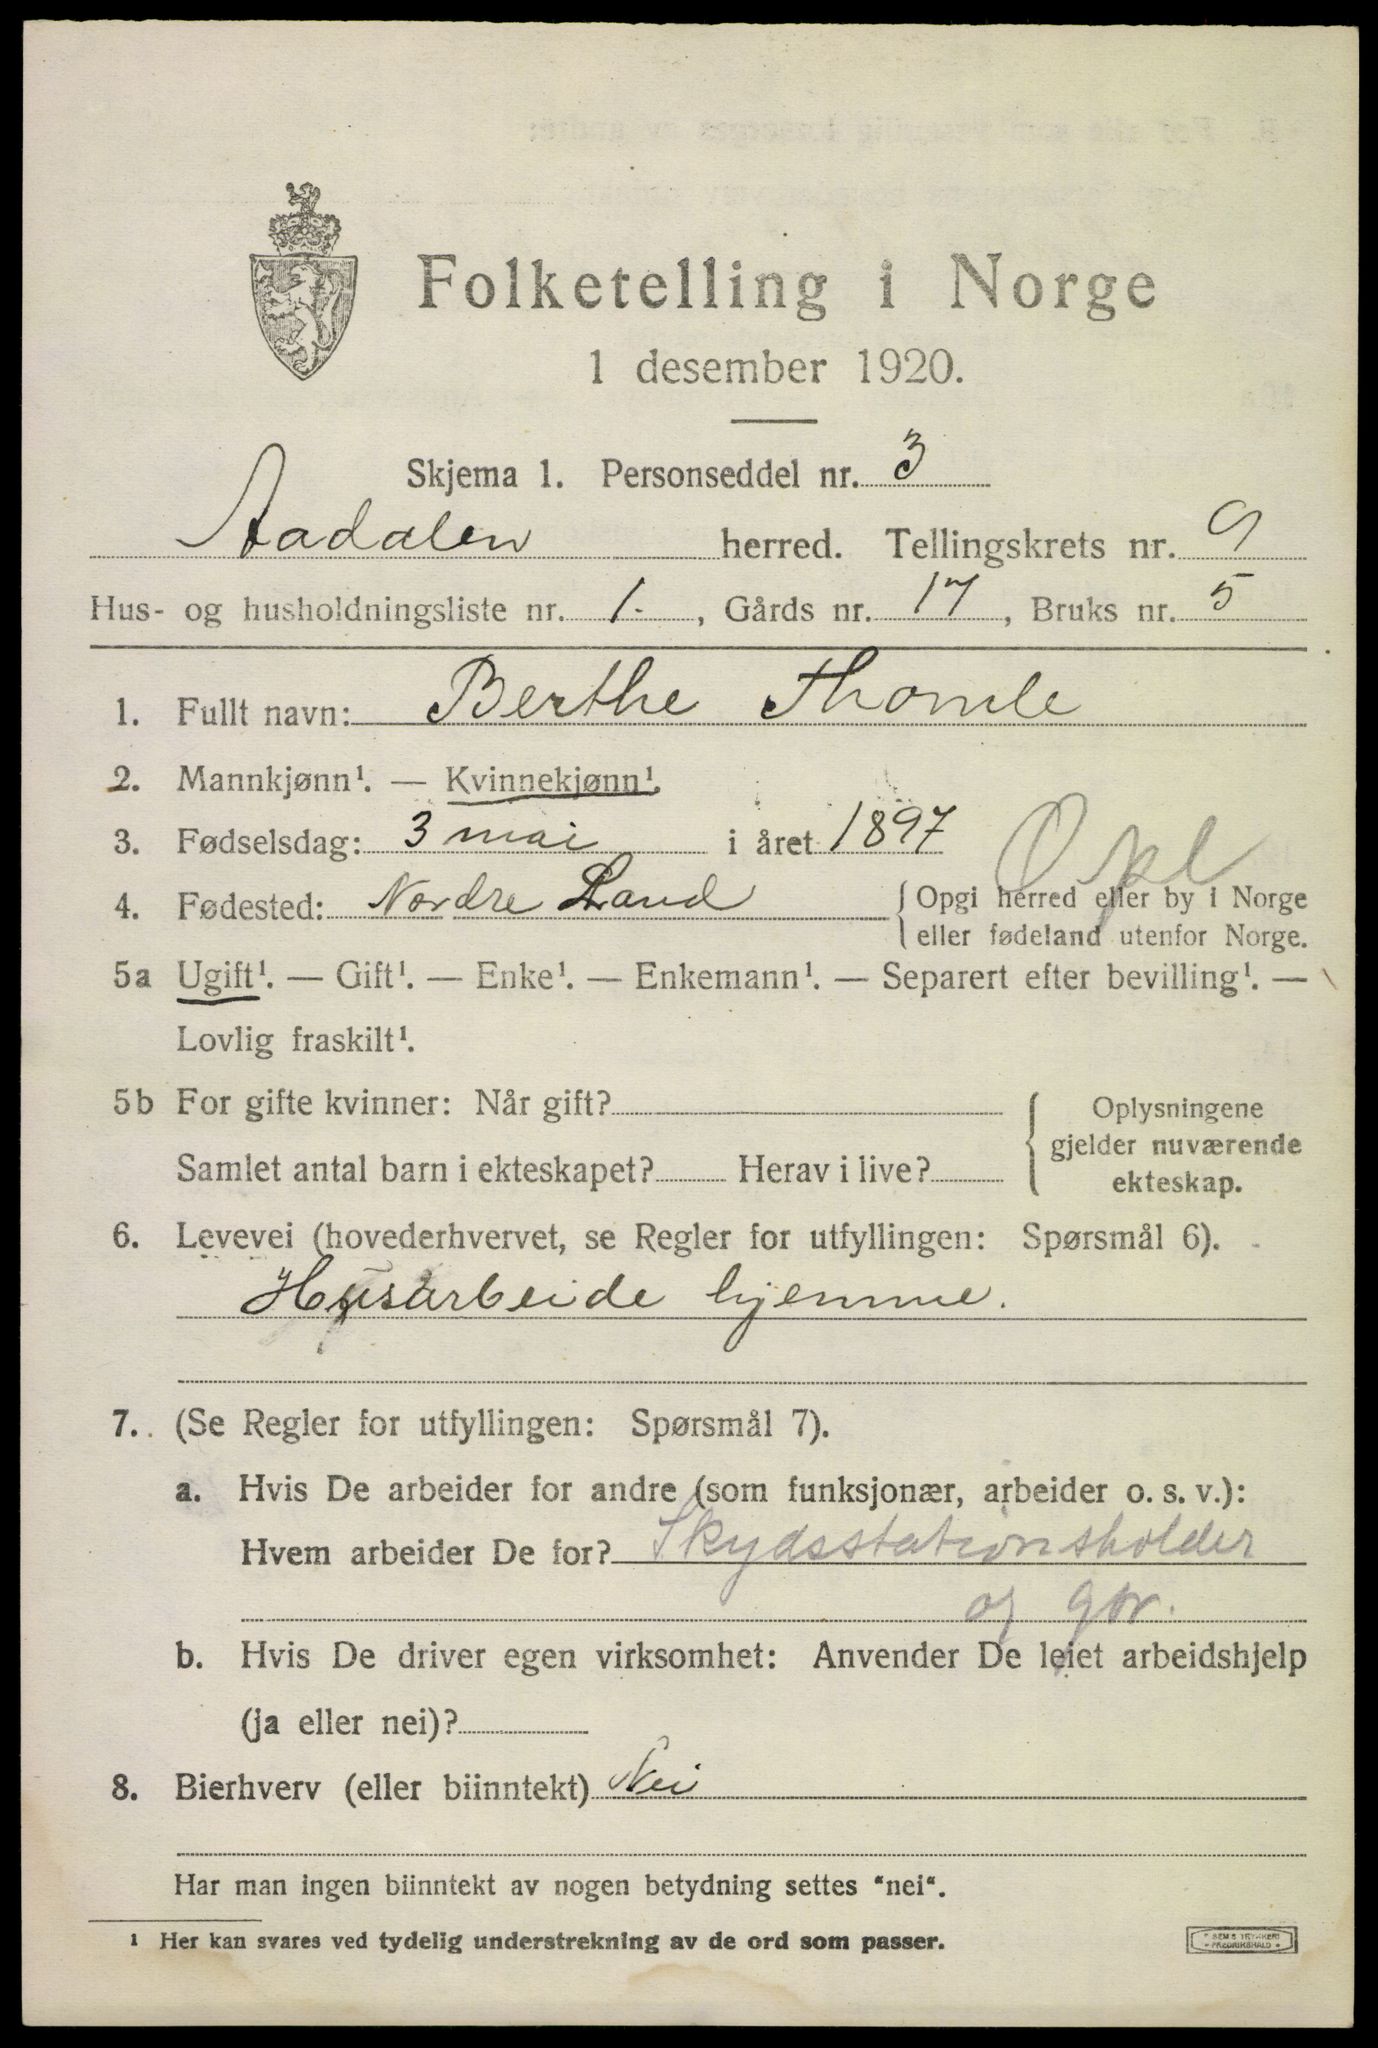 Folketelling i Norge
1 desember 1920.
Skjema 1. Personseddel nr. 3
Aadalen herred. Tellingskrets nr. 9
Hus- og husholdningsliste nr. 1. , Gårds nr. 17, Bruks nr. 5
1. Fullt navn: Berthe Thomle
2. Mannkjønn¹. — Kvinnekjønn¹.
3. Fødselsdag: 3 mai i året 1897
Opl
4. Fødested: Nordre Land { Opgi herred eller by i Norge
eller fødeland utenfor Norge.
5a Ugift¹. — Gift¹. — Enke¹. — Enkemann¹. — Separert efter bevilling¹. —
Lovlig fraskilt¹.
5b For gifte kvinner: Når gift? { Oplysningene
gjelder nuværende
Samlet antal barn i ekteskapet? Herav i live?
ekteskap.
6. Levevei (hovederhvervet, se Regler for utfyllingen: Spørsmål 6).
Husarbeide hjemme.
7. (Se Regler for utfyllingen: Spørsmål 7).
a. Hvis De arbeider for andre (som funksjonær, arbeider o. s. v.):
Hvem arbeider De for? Skydsstationsholder
og gbr.
b. Hvis De driver egen virksomhet: Anvender De leiet arbeidshjelp
(ja eller nei)?
8. Bierhverv (eller biinntekt) Nei
Har man ingen biinntekt av nogen betydning settes "nei".
¹ Her kan svares ved tydelig understrekning av de ord som passer.
SEM'S TRYKKERI
FREDRIKSHALD